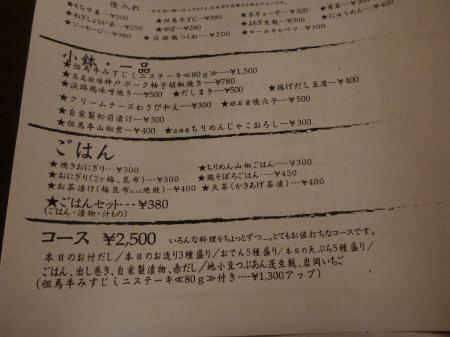 後入れ
★もち巾着---¥200 ★但馬牛すじ---¥380 ★水ギョーザ---¥ ★
★ねぎしょうが天---¥250 ★ゆば---¥280 ★よもぎ生麩---¥300 ★にゅうめん---¥400
★ソーセージ---¥380 ★淡路鶏つくね---¥200 ★ロールキャベツ---¥300
小鉢・一品
★但馬牛みすじミニステーキ≪80g≫---¥1,500
★高尾牧場神戸ポーク柚子胡椒焼き---¥780
★淡路鶏味噌焼き---¥500 ★だしまき---¥500 ★揚げだし豆腐---¥400
★クリームチーズわさび和え---¥300 ★明石産焼穴子---¥500
★自家製松前漬け---¥300
★但馬牛山椒煮---¥400 ★淡路産ちりめんじゃこおろし---¥300
ごはん
★焼きおにぎり---¥300 ★ちりめん山椒ごはん---¥300
★おにぎり(2ヶ梅、昆布)---¥300 ★鶏そぼろごはん---¥450
★お茶漬け(梅昆布又は焼鮭)---¥400 ★天茶(かきあげ茶漬)---¥400
★ごはんセット---¥380
(ごはん・漬物・汁もの)
コース ¥2,500 いろんな料理をちょっとずつ…。とてもお値打ちなコースです。
本日のお付だし/本日のお造り3種盛り/おでん5種盛り/本日の天ぷら5種盛り/
ごはん、出し巻き、自家製漬物、赤だし/地小豆つぶあん蓬生麩、岩岡いちご
(但馬牛みすじミニステーキ≪80g≫付き----¥1,300アップ)